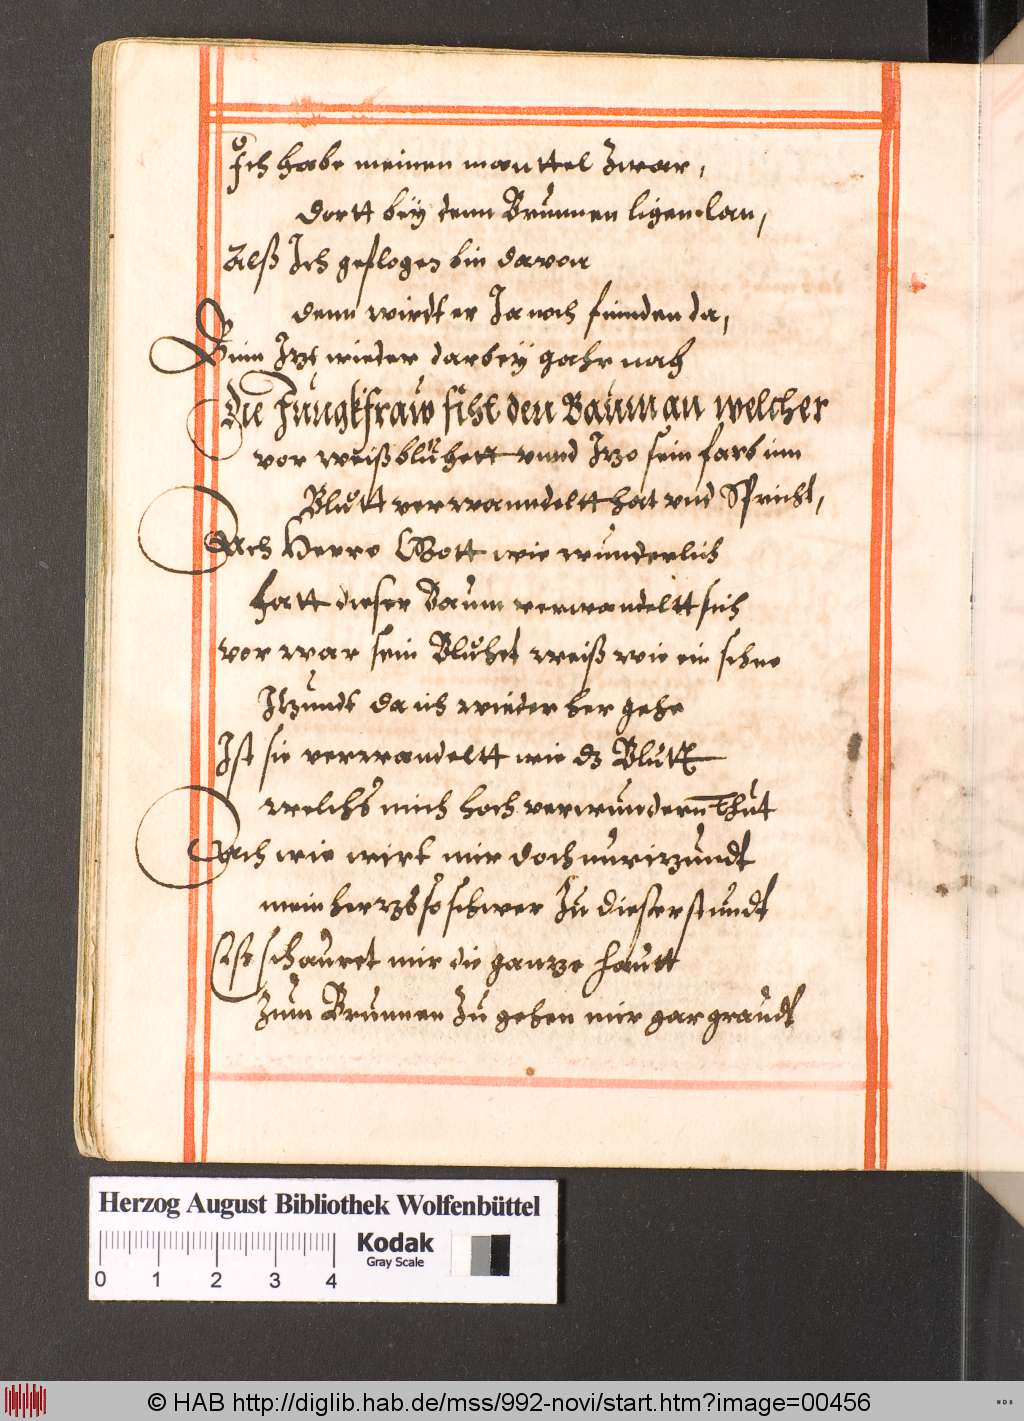 Ich habe meinen manttel Zwar,
dortt beÿ denn Brunnen ligen lan,
Alß Ich geflogen bin davon
denn wirdt er Ja noch finnden da,
Binn Izt wieder darbeÿ gahr nach
Die Jungkfraw siht den Baum an welcher
vor weiß blühett vnnd Izo sein farb inn
Blutt verwanndeltt hat vnd Spricht,
Ach Herre Gott wie wunderlich
hatt dieser Baum verwandeltt sich
vor war sein Bluhet weiß wie ein schne
Itzundt da ich wieder her gehe
Ist sie verwandeltt wie dz Blutt
welchs mich hoch verwundern Thut
Ach wie wirt mir doch nur izundt
mein herzs so schwer Zu dieser stundt
Est schauret mir die ganze hautt
Zum Brunnen Zu gehen mir gar graudt
Herzog August Bibliothek Wolfenbüttel
Kodak
Gray Scale
0 1 2 3 4
© HAB http://diglib.hab.de/mss/992-novi/start.htm?image=00456